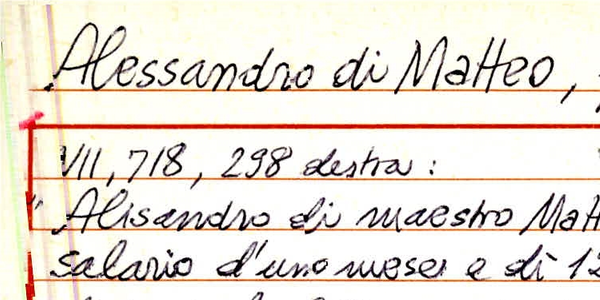 Alessandro di Matteo,
VII, 718, 298 destra:
"Alisandro di maestro Matt
salario d'uno mese e dì 12